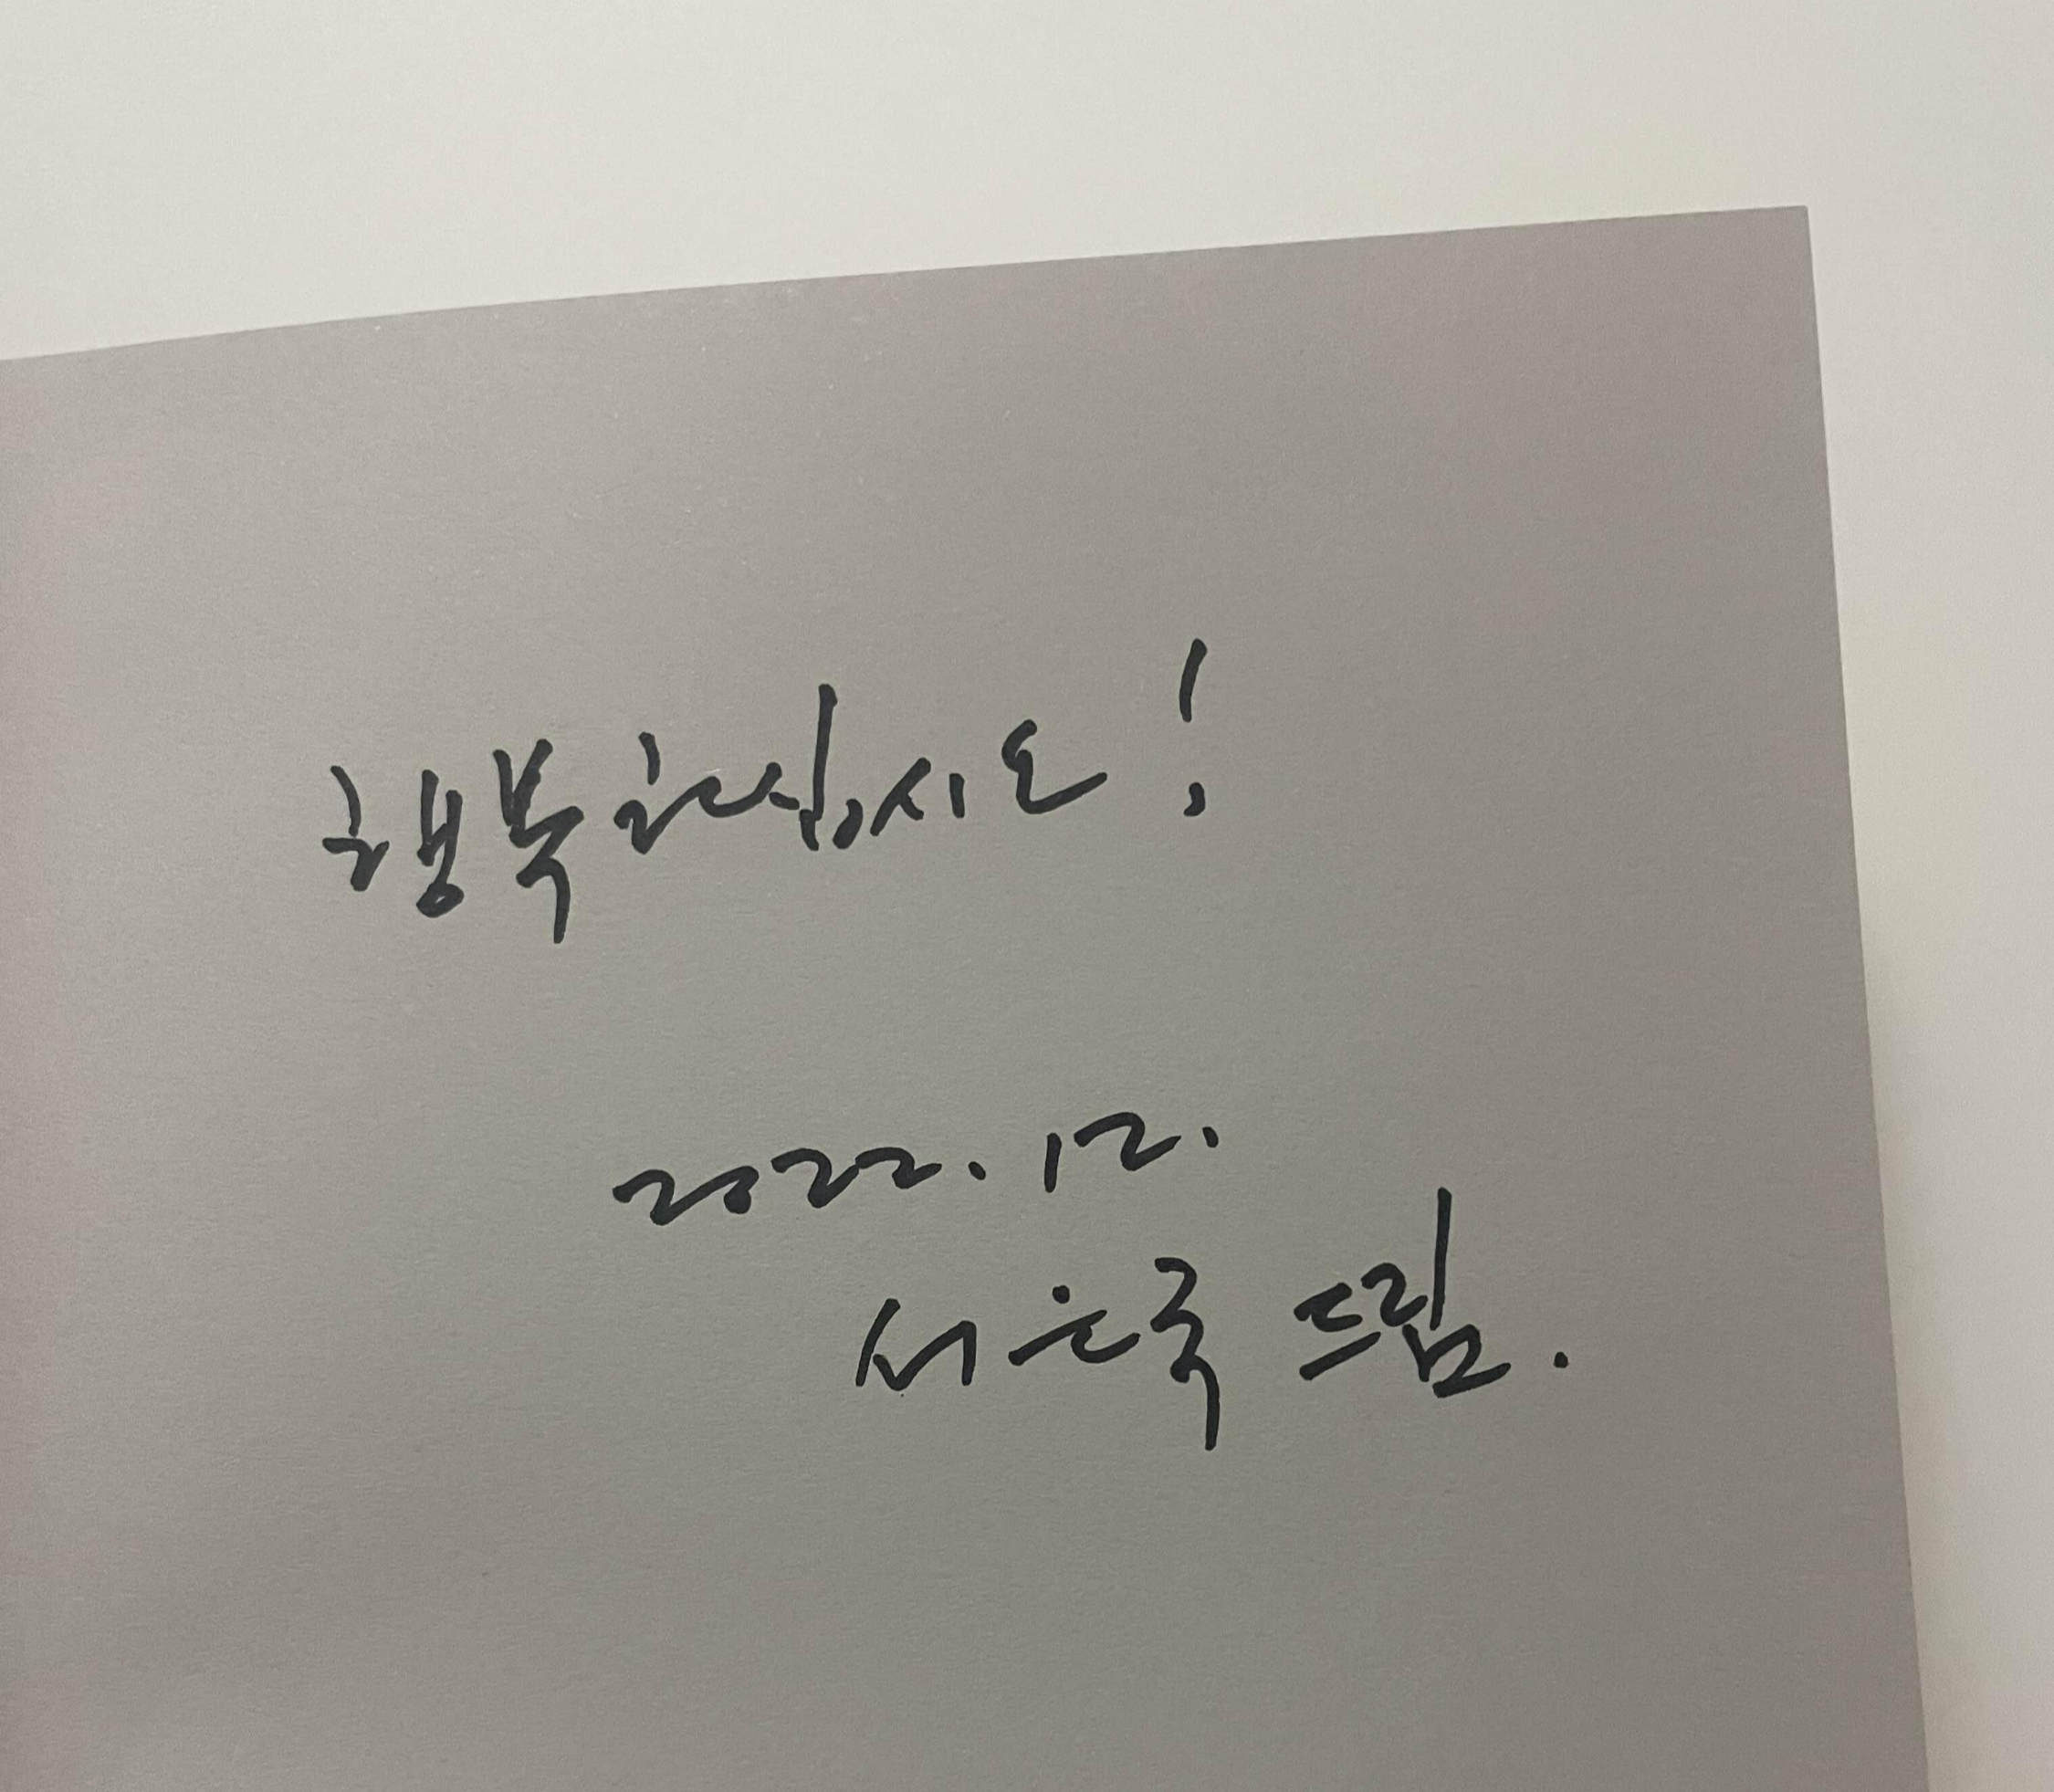 행복하십시오!
2022. 12.
서은국 드림.